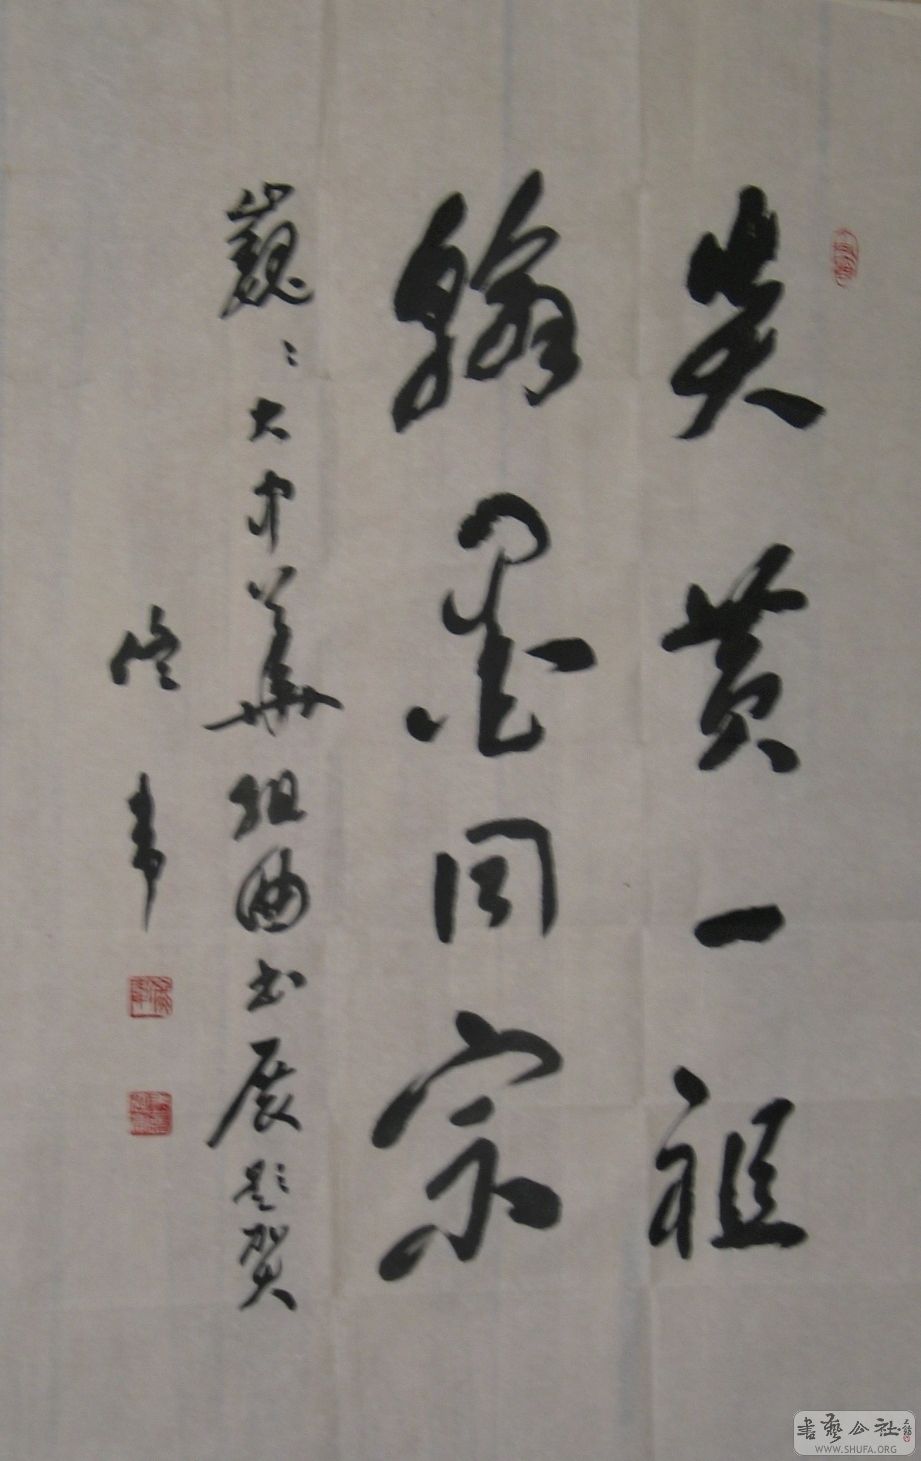 炎黄一祖
翰墨同宗
巍〻大中華組曲书展题贺
书艺公社
WWW.SHUFA.ORG